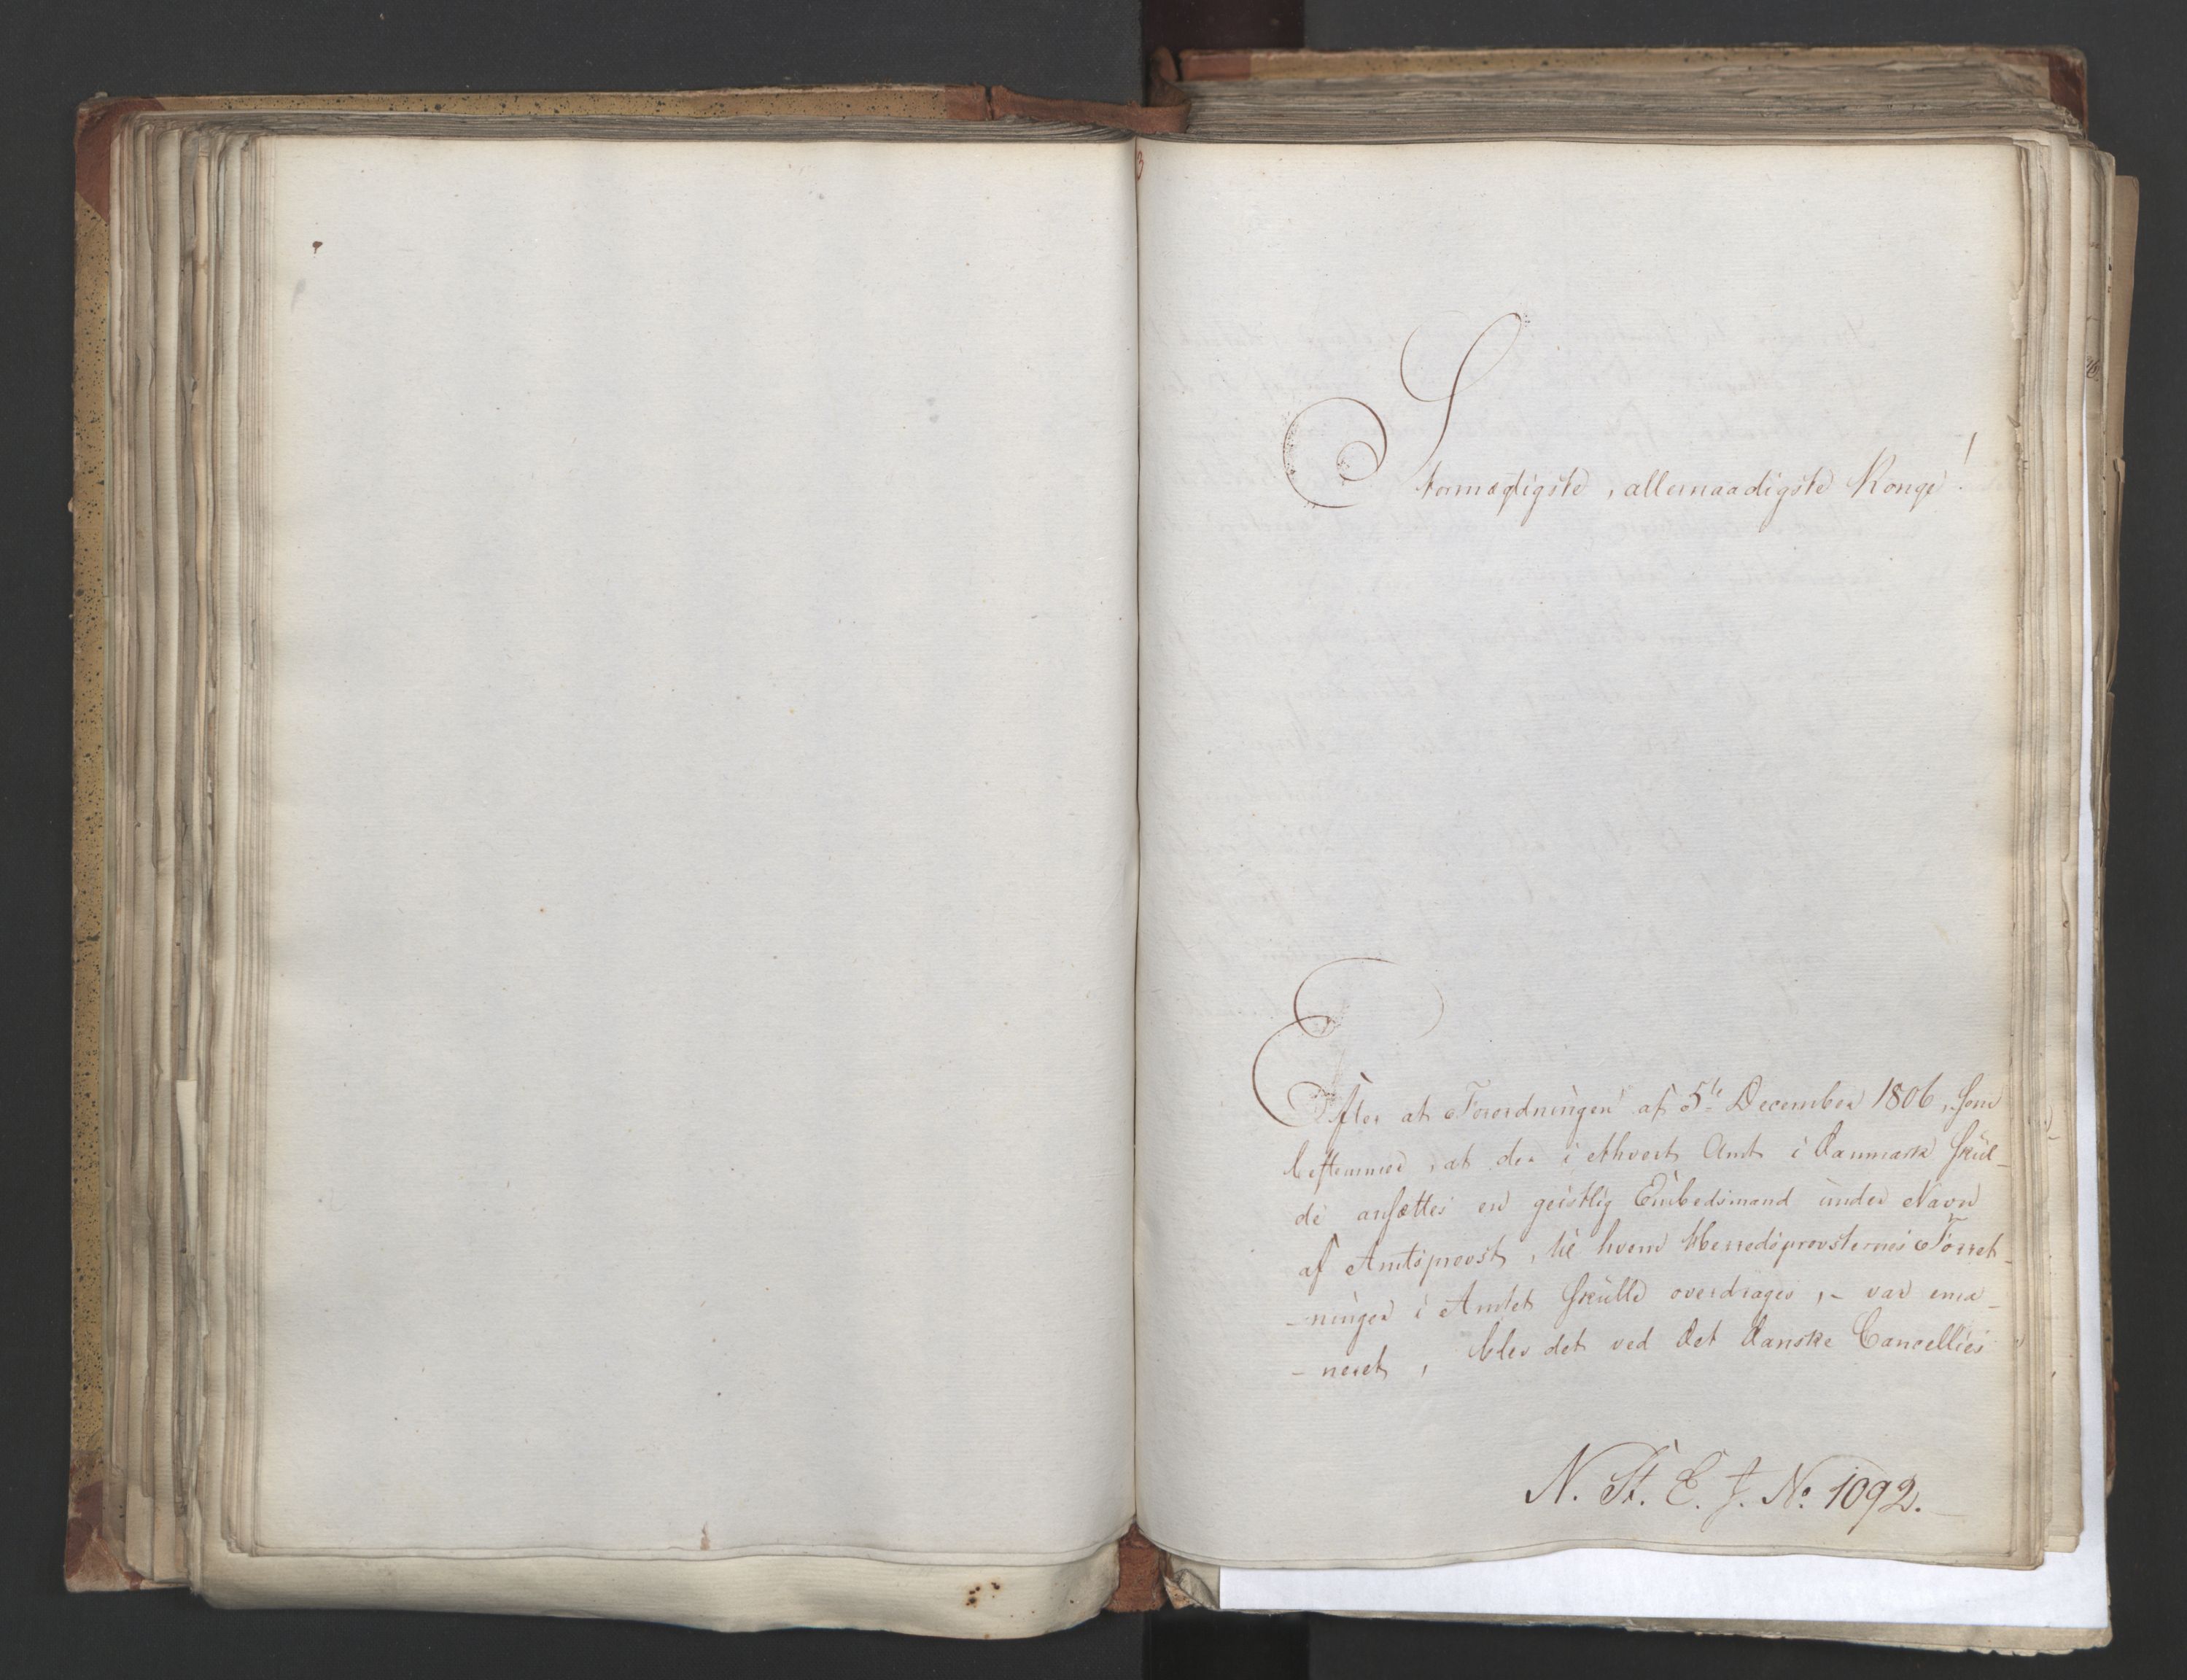 3
Stormægtigste, allernaadigste Konge!
Efter at Forordningen af 5te December 1806, som
bestemmer, at der i ethvert Amt i Danmark skul-
de ansættes en geistlig Embedsmand under Navn
af Amtsprovst, til hvem Herredsprovsternes Forret-
-ninger i Amtet skulle overdrages, - var ema-
-neret, blev det ved Det Danske Cancellies
N. St. E. J. No. 1092.